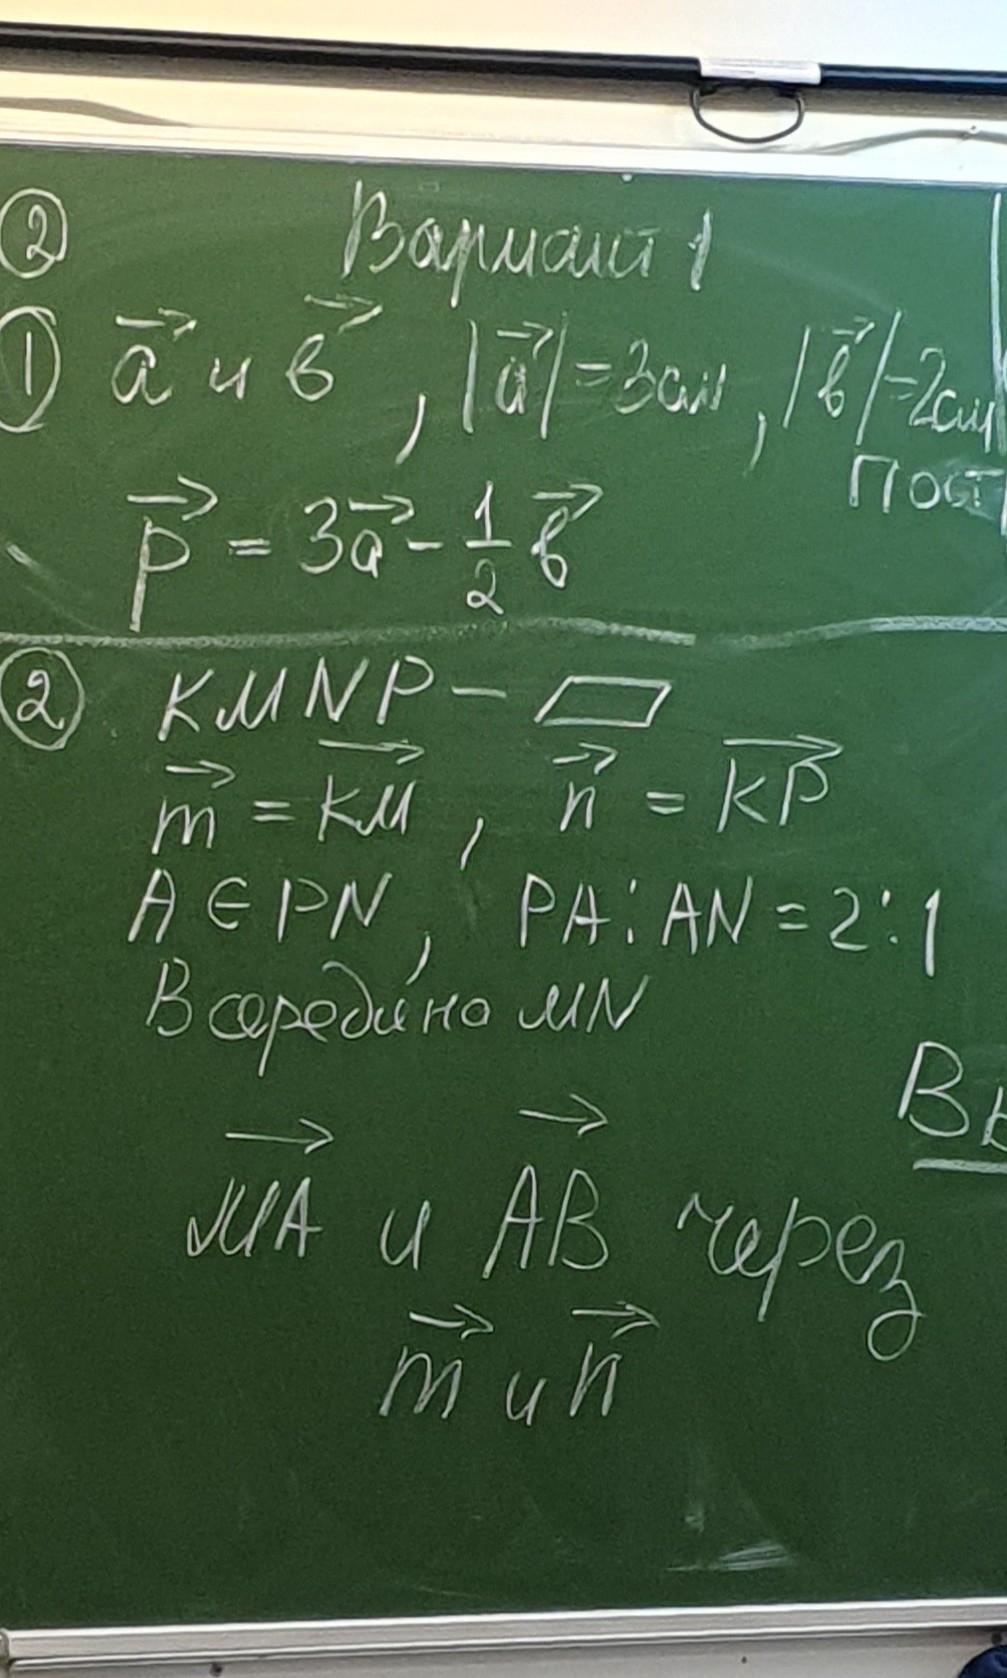 ② Вариант 1
① a⃗ и в⃗, |a⃗|=3см, |в⃗|=2см
Пост
p⃗ = 3a⃗ - 1/2 в⃗
② KMNP - ▱
m⃗ = KM⃗, n⃗ = KP⃗
A ∈ PN, PA:AN = 2:1
В середина MN
Вы
MA⃗ и AB⃗ через
m⃗ и n⃗